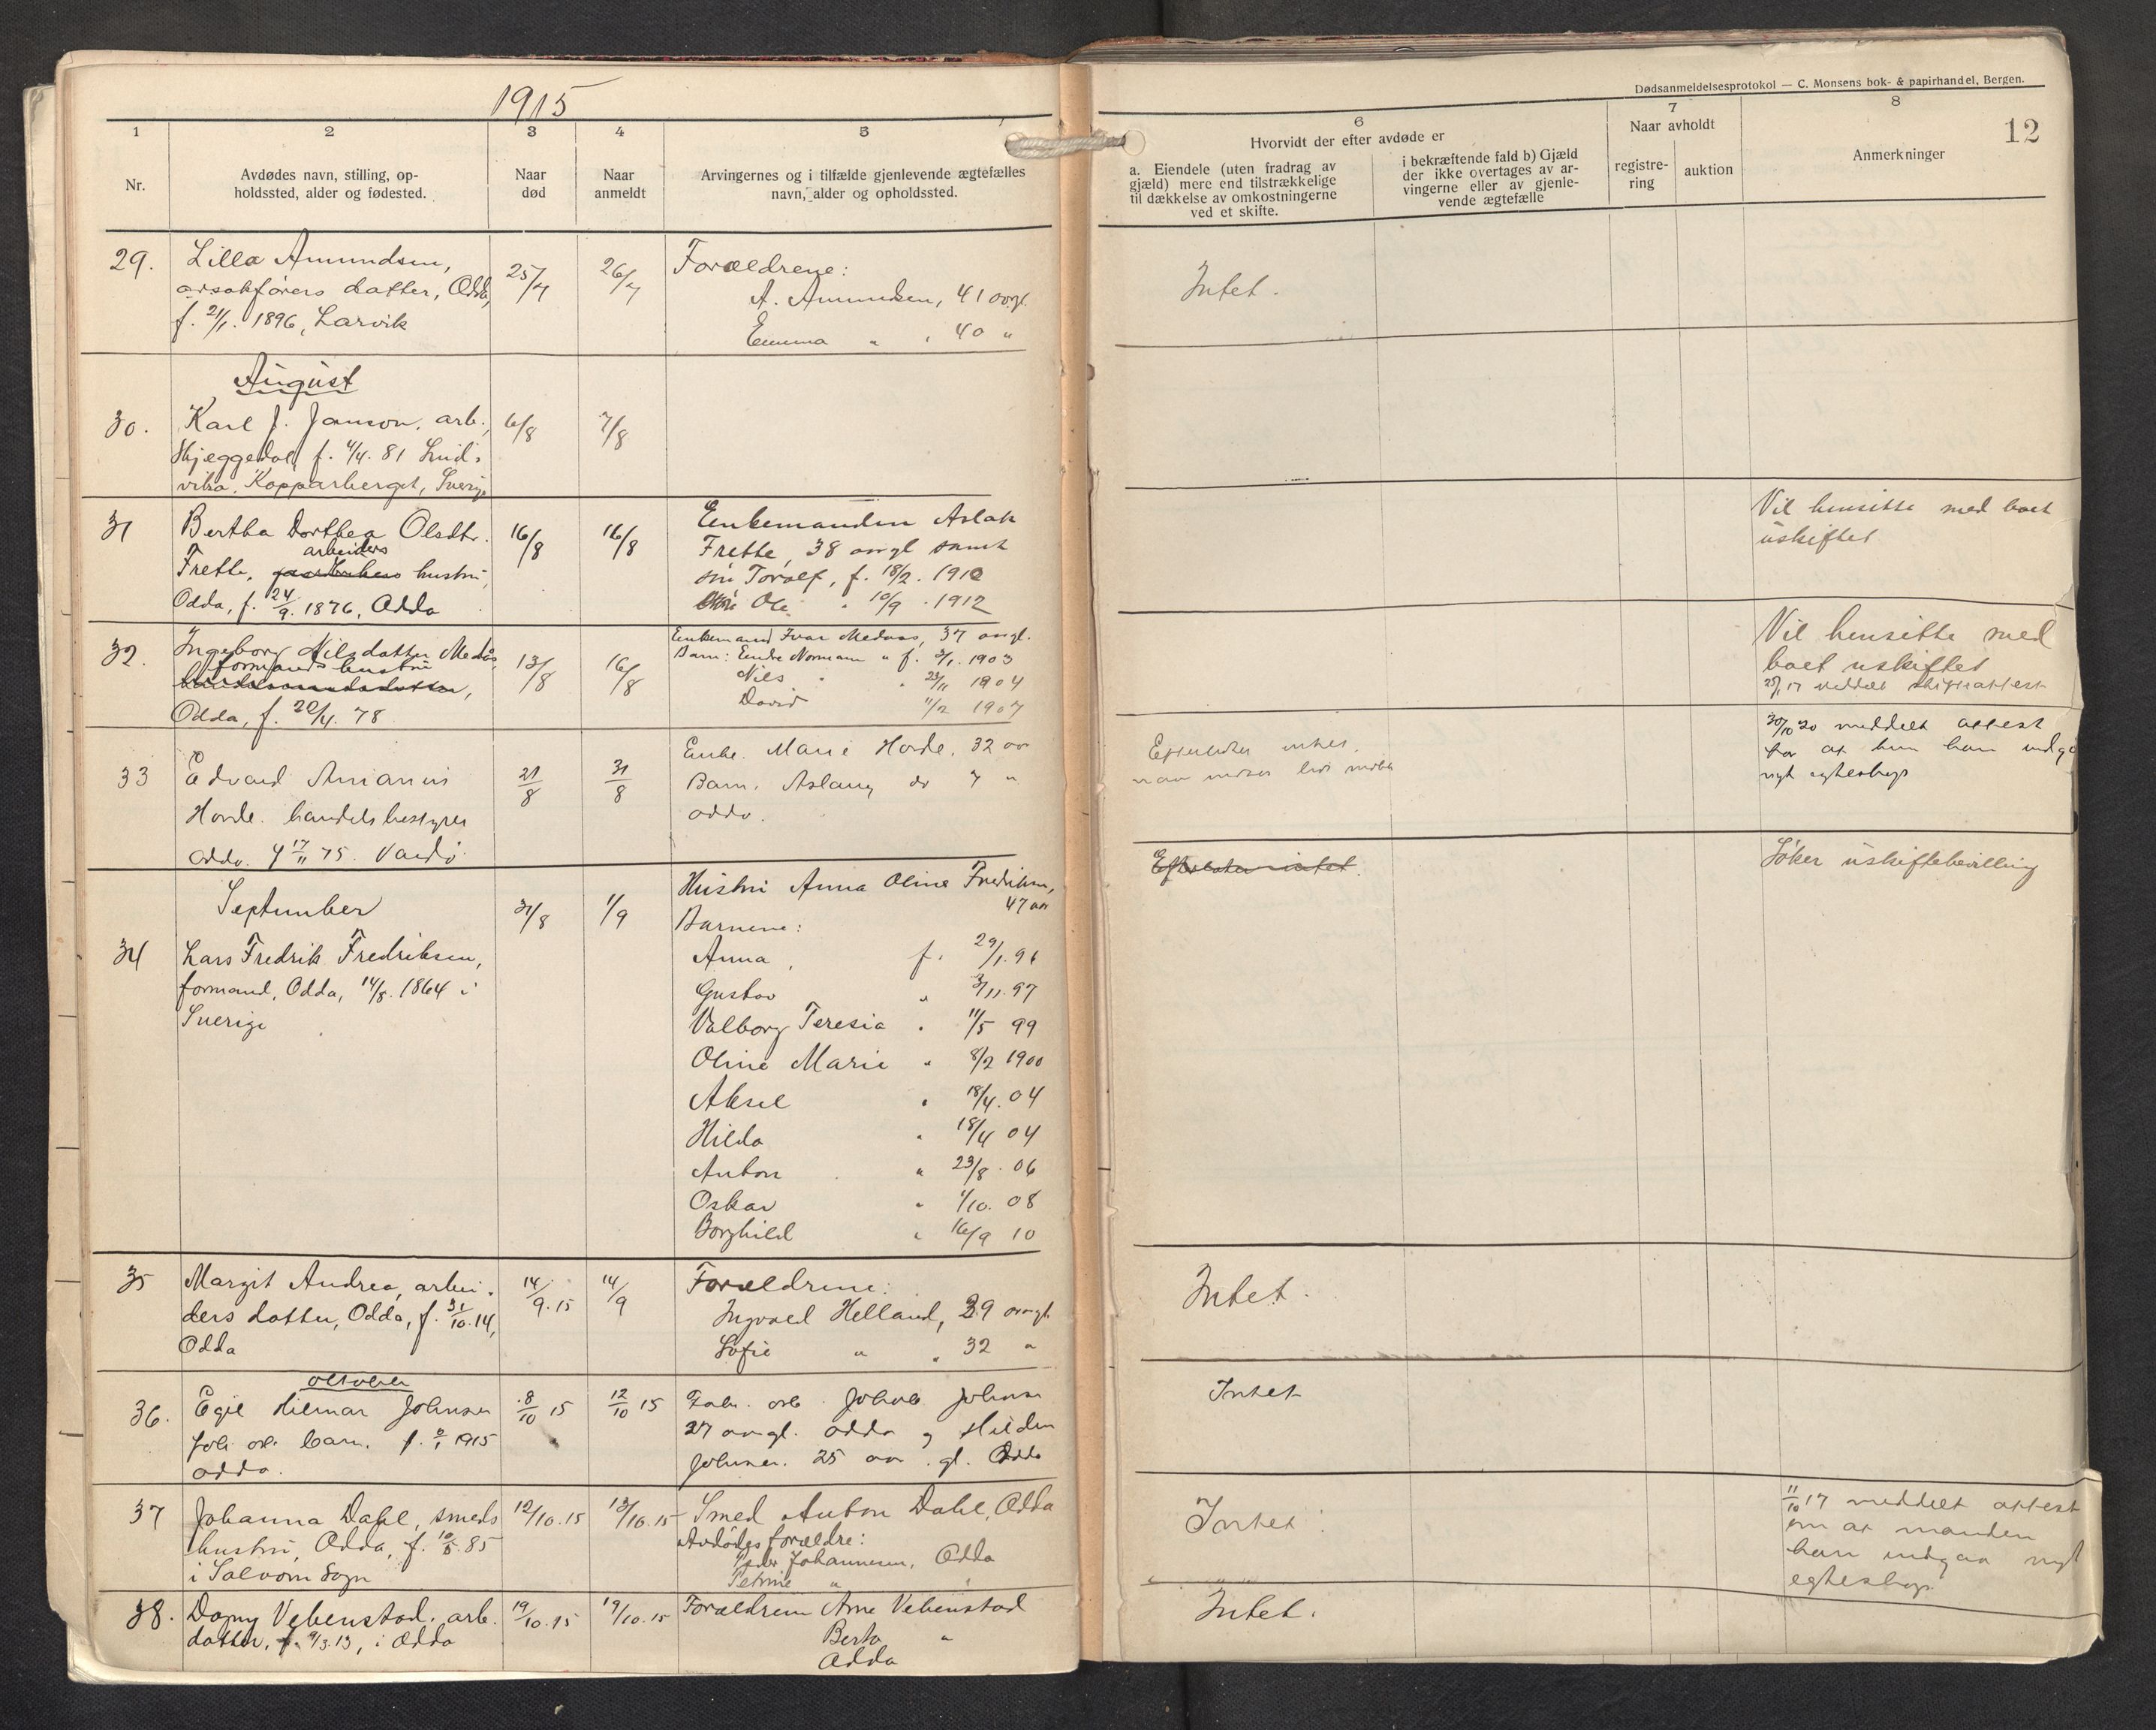 1915
Dødsanmeldelsesprotokol — C. Monsens bok- & papirhandel, Bergen.
12
1
2
3
4
5
6
7
8
Nr.
Avdødes navn, stilling, op-
holdssted, alder og fødested.
Naar
død
Naar
anmeldt
Arvingernes og i tilfælde gjenlevende ægtefælles
navn, alder og opholdssted.
Hvorvidt der efter avdøde er
a. Eiendele (uten fradrag av
gjæld) mere end tilstrækkelige
til dækkelse av omkostningerne
ved et skifte.
i bekræftende fald b) Gjæld
der ikke overtages av ar-
vingerne eller av gjenle-
vende ægtefælle
Naar avholdt
registre-
ring
auktion
Anmerkninger
29.
Lilla Amundsen,
datter, Odda,
f. 21/1. 1896, Larvik
25/7
26/7
Forældrene:
A. Amundsen, 41 aargl.
Emma " , 40 "
Intet.
August
30.
Karl J. Janson, arb.,
Skjeggedal, f. 4/4. 81
Kopparberget, Sverige
6/8
7/8
31
Bertha Dorthea Olsdtr.
arbeiders
Frette, hustru,
Odda, f. 24/9. 1876, Odda
16/8
16/8
Enkemanden Aslak
Frette, 38 aargl samt
Toralf, f. 18/2. 1910
Ole " 10/9 . 1912
Vil hensitte med boet
uskiftet
32.
Ingeborg Nilsdatter Medaas,
formands hustru
Odda, f. 20/4. 78
13/8
16/8
Enkemand Ivar Medaas, 37 aargl.
Barn: Endre Normann " f. 3/1. 1903
Nils " " 23/11 1904
David 11/2 1907
Vil hensitte med
boet uskiftet
meddelt skifteattest
33
Edvard Arianus
Horde. handelsbestyrer
Odda. f 17/11 75. Vardø
21/8
31/8
Enke. Marie Horde, 32 aar
Barn. Aslaug do 7 "
Odda.
Efterlater intet,
30/10 20 meddelt attest
for at hun kan indgå
nyt egteskap
September
34
Lars Fredrik Fredriksen,
formand, Odda, 14/8. 1864 i
Sverige
31/8
1/9
Hustru Anna Oline Fredriksen,
47 aar
Barnene:
Anna, f. 29/1. 96
Gustav " 3/11. 97
Valborg Teresia " 11/5 99
Oline Marie " 8/2 1900
Aksel " 18/4. 04
Hilda " 18/4 04
Anton " 23/8. 06
Oskar " 1/10. 08
Borghild " 16/9 10
Efterlater intet.
Søker uskiftebevilling
35
Margit Andrea, arbei-
ders datter, Odda, f. 31/10. 14,
Odda
14/9. 15
14/9
Forældrene:
Ingvald Helland, 39 aargl.
Sofie " " 32 "
Intet.
oktober
36.
Egil Hilmar Johnsen
barn. f. 1915
Odda.
8/10 15
12/10 15
Fabr. arb. Johnsen
27 aargl. Odda og Hilda
Johnsen. 25 aar gl. Odda
Intet
37
Johanna Dahl, smeds
hustru, Odda, f. 10/5. 85
i Sogn
12/10. 15
13/10. 15
Smed Anton Dahl, Odda
Avdødes forældre:
Peder Johannesen, Odda
Petrine "
Intet.
11/10 17 meddelt attest
om at manden
kan indgaa nyt
egteskap
38.
Dagny Vebenstad, arb.
datter, f. 9/3. 13, i Odda
19/10. 15
19/10. 15
Forældrene Arne Vebenstad
Berta "
Odda
Intet.